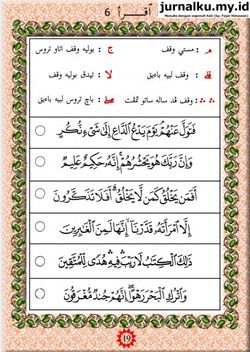 jurnalku.my.id
Menulis dengan sepenuh hati (by: Fajar Himawan)
اقرأ 6
مـ : مستي وقف ج : بوليه وقف اتاو تروس
قلى : وقف لبيه باءيق لا : تيدق بوليه وقف
∴ ∴ : وقف قد ساله ساتو تمڤت صلى : باچ تروس لبيه باءيق
فَتَوَلَّ عَنْهُمْ ۘ يَوْمَ يَدْعُ الدَّاعِ إِلَىٰ شَيْءٍ نُّكُرٍ
وَإِنَّ رَبَّكَ هُوَ يَحْشُرُهُمْ ۚ إِنَّهُ حَكِيمٌ عَلِيمٌ
أَفَمَن يَخْلُقُ كَمَن لَّا يَخْلُقُ ۗ أَفَلَا تَذَكَّرُونَ
إِلَّا امْرَأَتَهُ قَدَّرْنَا ۙ إِنَّهَا لَمِنَ الْغٰبِرِينَ
ذَٰلِكَ الْكِتٰبُ لَا رَيْبَ ۛ فِيهِ ۛ هُدًى لِّلْمُتَّقِينَ
وَاتْرُكِ الْبَحْرَ رَهْوًا ۖ إِنَّهُمْ جُندٌ مُّغْرَقُونَ
19